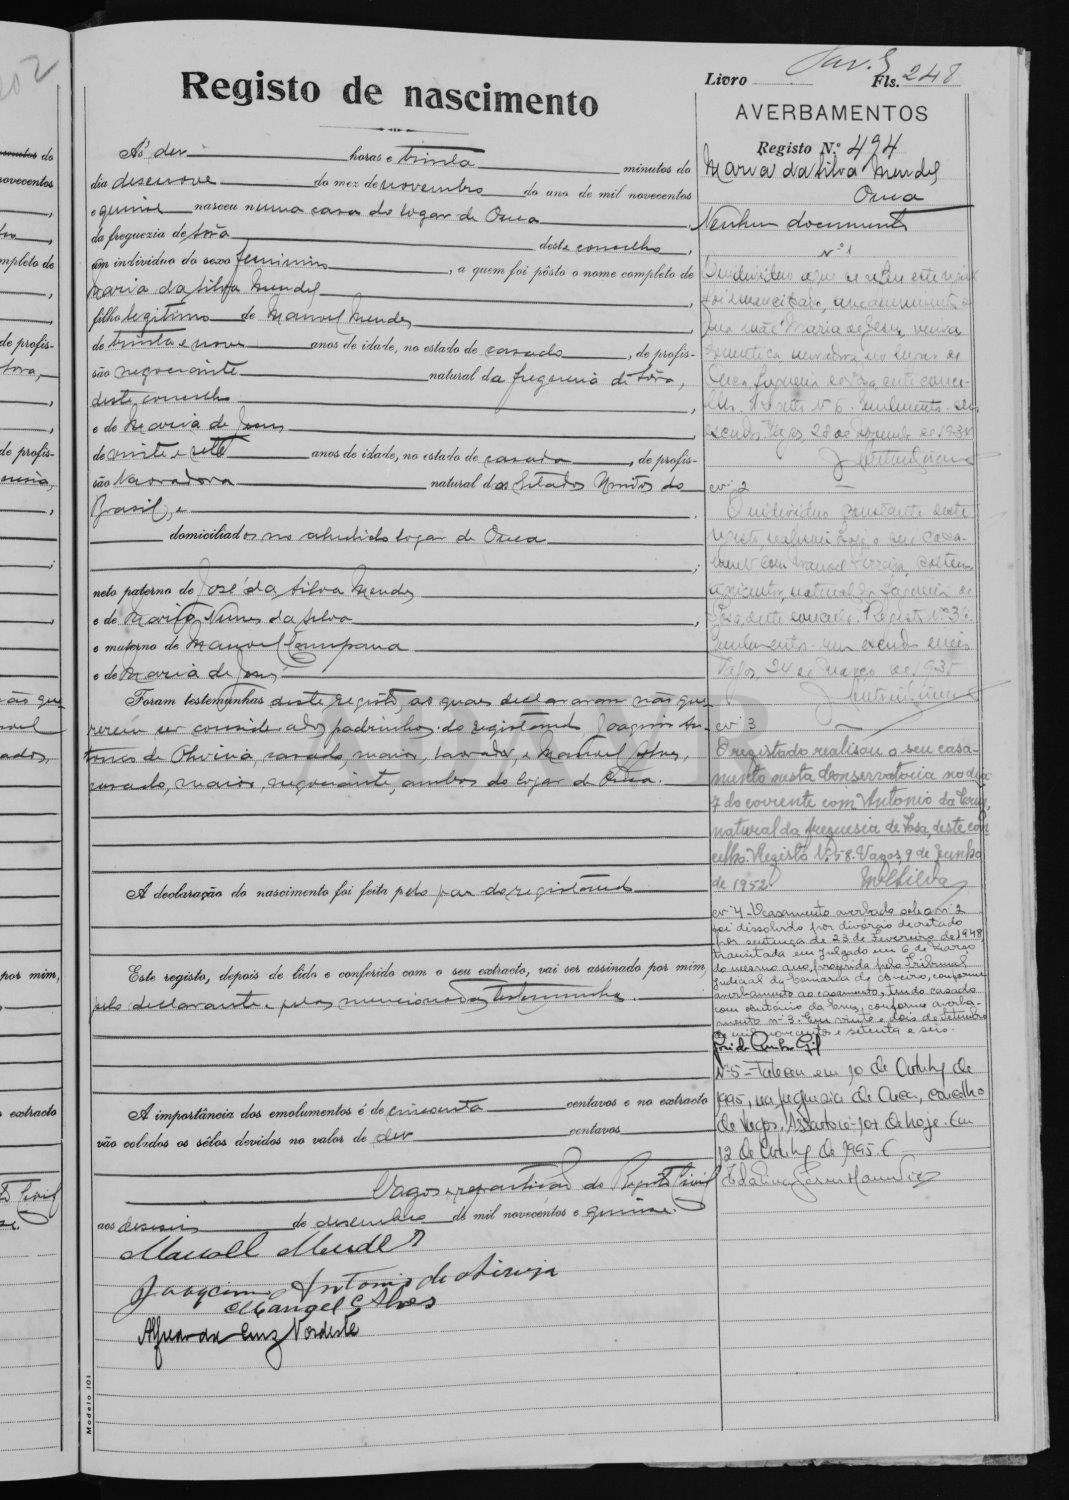 Registo de nascimento
Livro Fls. 248
AVERBAMENTOS
Registo N.º 494
Maria da Silva Mendes
Ouca
Nenhum documento
Ás dez horas e trinta minutos do
dia desenove do mez de novembro do ano de mil novecentos
e quinze nasceu numa casa do logar de Ouca
da freguezia de Sôza deste concelho,
um individuo do sexo feminino, a quem foi pôsto o nome completo de
Maria da Silva Mendes
filho legitimo de Manuel Mendes
de trinta e nove anos de idade, no estado de casado, de profis-
são negociante natural da freguesia de Sôza,
deste concelho
e de Maria de Jesus
de vinte e sete anos de idade, no estado de casada, de profis-
são lavradora natural dos Estados Unidos do
Brasil, e
domiciliados no aludido logar de Ouca
neto paterno de José da Silva Mendes
e de Maria Nunes da Silva
e materno de Manuel Campana
e de Maria de Jesus
Foram testemunhas deste registo, as quaes declararam não que-
rerem ser considerados padrinhos do registando Joaquim An-
tonio de Oliveira, casado, maior, lavrador, e Manuel Alves,
casado, maior, negociante, ambos do logar de Ouca.
A declaração do nascimento foi feita pelo pae do registando
Este registo, depois de lido e conferido com o seu extracto, vai ser assinado por mim,
pelo declarante e pelas mencionadas testemunhas.
A importância dos emolumentos é de cincoenta centavos e no extracto
vão colados os sêlos devidos no valor de dez centavos
Vagos e repartição do Registo Civil
aos deseseis de desembro de mil novecentos e quinze.
Manoel Mendes
Joaquim Antonio de Oliveira
Manoel Alves
Alfredo da Cruz Nordeste
Modelo 101
Nº 1
O individuo a que se refere este registo
foi emancipado,
sua mãe Maria de Jesus, viuva
Ouca, freguesia
Vagos, 28 de 1934
nº 2
O individuo constante deste
registo realisou hoje o seu casa-
mento com Manuel Ferreira, solteiro,
agricultor, natural da freguesia de
Vagos, 24 de Março de 935
nº 3
O registado realisou o seu casa-
mento nesta Conservatoria no dia
7 do corrente com Antonio da Cruz,
natural da freguesia de Sosa, deste con
celho. Registo Nº 58. Vagos, 9 de Junho
de 1952.
nº 4 - O casamento averbado sob o nº 2
foi dissolvido por divorcio decretado
por sentença de 23 de Fevereiro de 1948,
transitada em julgado em 6 de Março
do mesmo ano, proferida pelo Tribunal
Judicial da Comarca de Aveiro, conforme
averbamento ao casamento, tendo casado
com António da Cruz, conforme averba-
mento nº 3. Em vinte e dois de Setembro
de mil novecentos e setenta e seis.
Nº 5 - Faleceu em 10 de Outubro de
1995, na freguesia de Ouca, concelho
de Vagos. Assento nº 107 de hoje. Em
12 de Outubro de 1995.